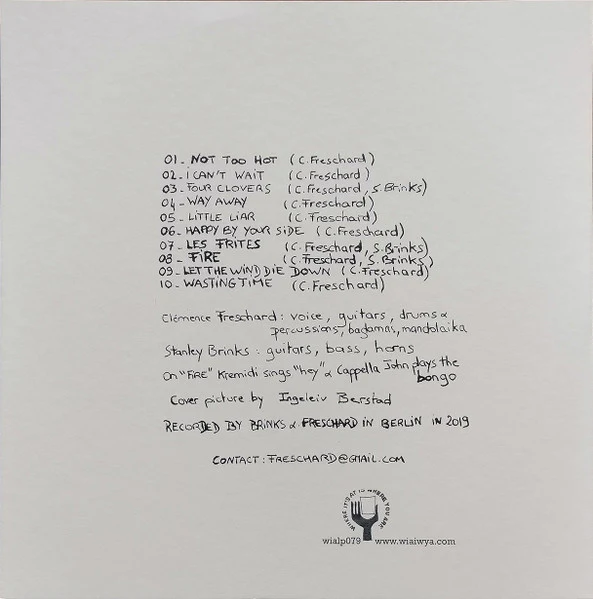 01_ NOT TOO HOT (C. Freschard)
02_ I CAN'T WAIT (C. Freschard)
03_ FOUR CLOVERS (C. Freschard, S. Brinks)
04_ WAY AWAY (C. Freschard)
05_ LITTLE LIAR (C. Freschard)
06_ HAPPY BY YOUR SIDE (C. Freschard)
07_ LES FRITES (C. Freschard, S. Brinks)
08_ FIRE (C. Freschard, S. Brinks)
09_ LET THE WIND DIE DOWN (C. Freschard)
10_ WASTING TIME (C. Freschard)
Clémence Freschard : voice, guitars, drums &
percussions, bagamas, mandolaika
Stanley Brinks : guitars, bass, horns
On "FIRE" Kremidi sings "hey" & Cappella John plays the
bongo
Cover picture by Ingeleiv Berstad
RECORDED BY BRINKS & FRESCHARD IN BERLIN IN 2019
CONTACT : FRESCHARD@GMAIL.COM
WHERE IT'S AT IS WHERE YOU ARE
wialp079 www.wiaiwya.com